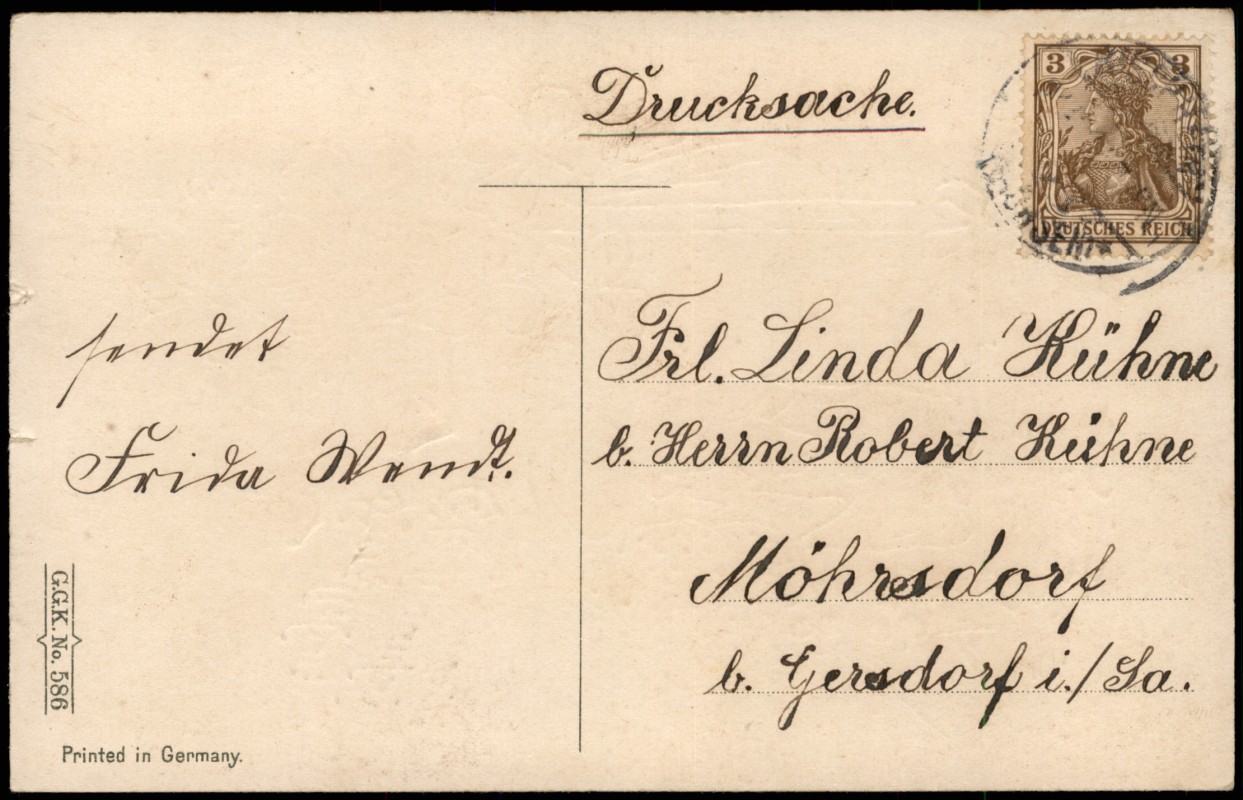 Drucksache.
3 3
DEUTSCHES REICH
sendet
Frida Wendt.
Frl. Linda Kühne
b. Herrn Robert Kühne
Möhrsdorf
b. Gersdorf i./Sa.
G.G.K. No. 586
Printed in Germany.